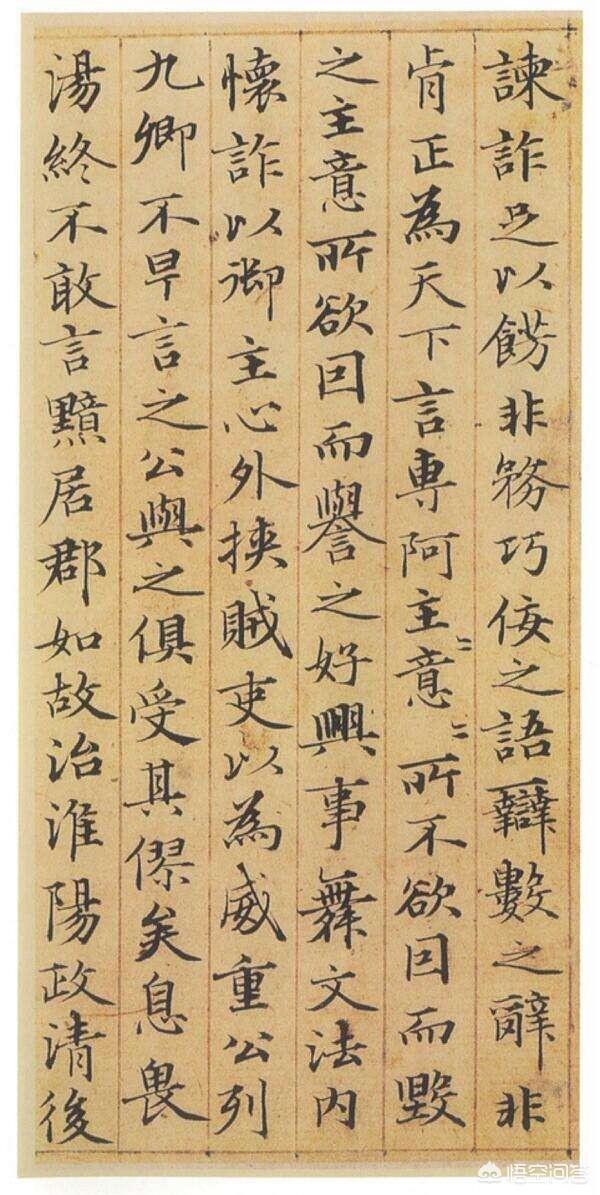 諫詐足以餝非務巧佞之語辯數之辭非
肯正為天下言專阿主〻意〻所不欲因而毀
之主意所欲因而譽之好興事舞文法内
懷詐以御主心外挾賊吏以為威重公列
九卿不早言之公與之俱受其僇矣息畏
湯終不敢言黯居郡如故治淮陽政清後
悟空问答